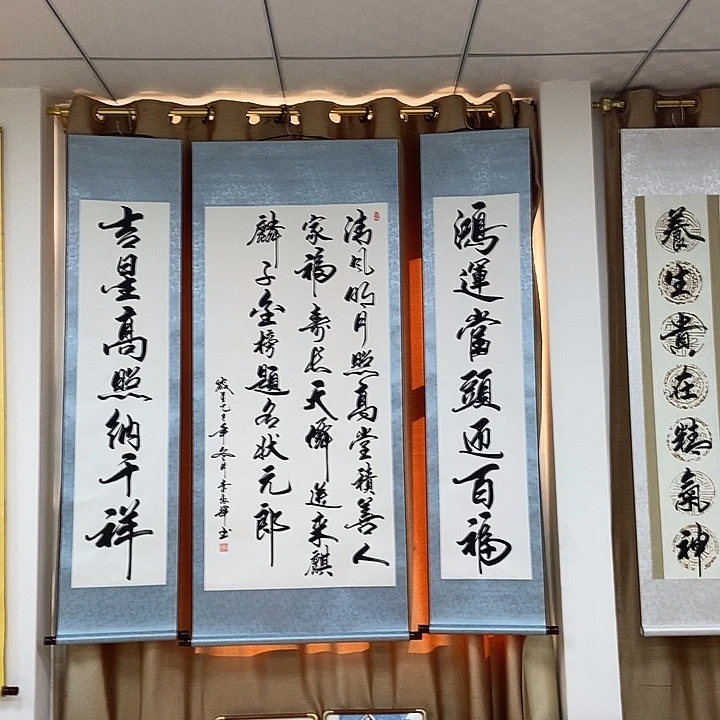 養生貴在精氣神
鴻運當頭迎百福
清风明月照高堂積善人
家福寿长天送来麒
麟子金榜題名状元郎
乙巳年冬月李书
吉星高照納千祥